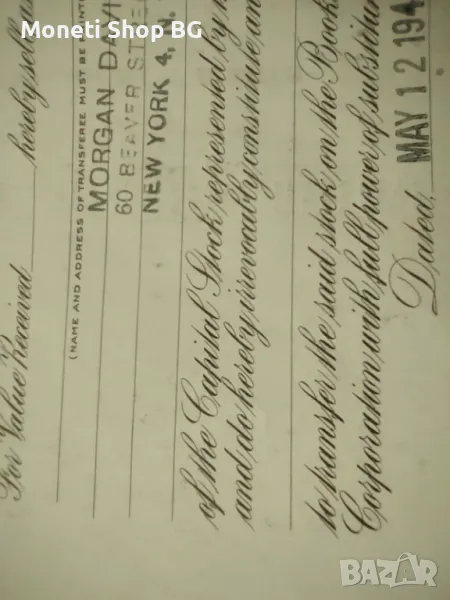 Moneti Shop BG
For Value Received hereby sell
(NAME AND ADDRESS OF TRANSFEREE MUST BE
MORGAN DAVI
60 BEAVER
NEW YORK 4,
of the Capital Stock represented by
and do hereby irrevocably constitute
to transfer the said stock on the
Corporation, with full power of
Dated, MAY 12 194
BAZAR